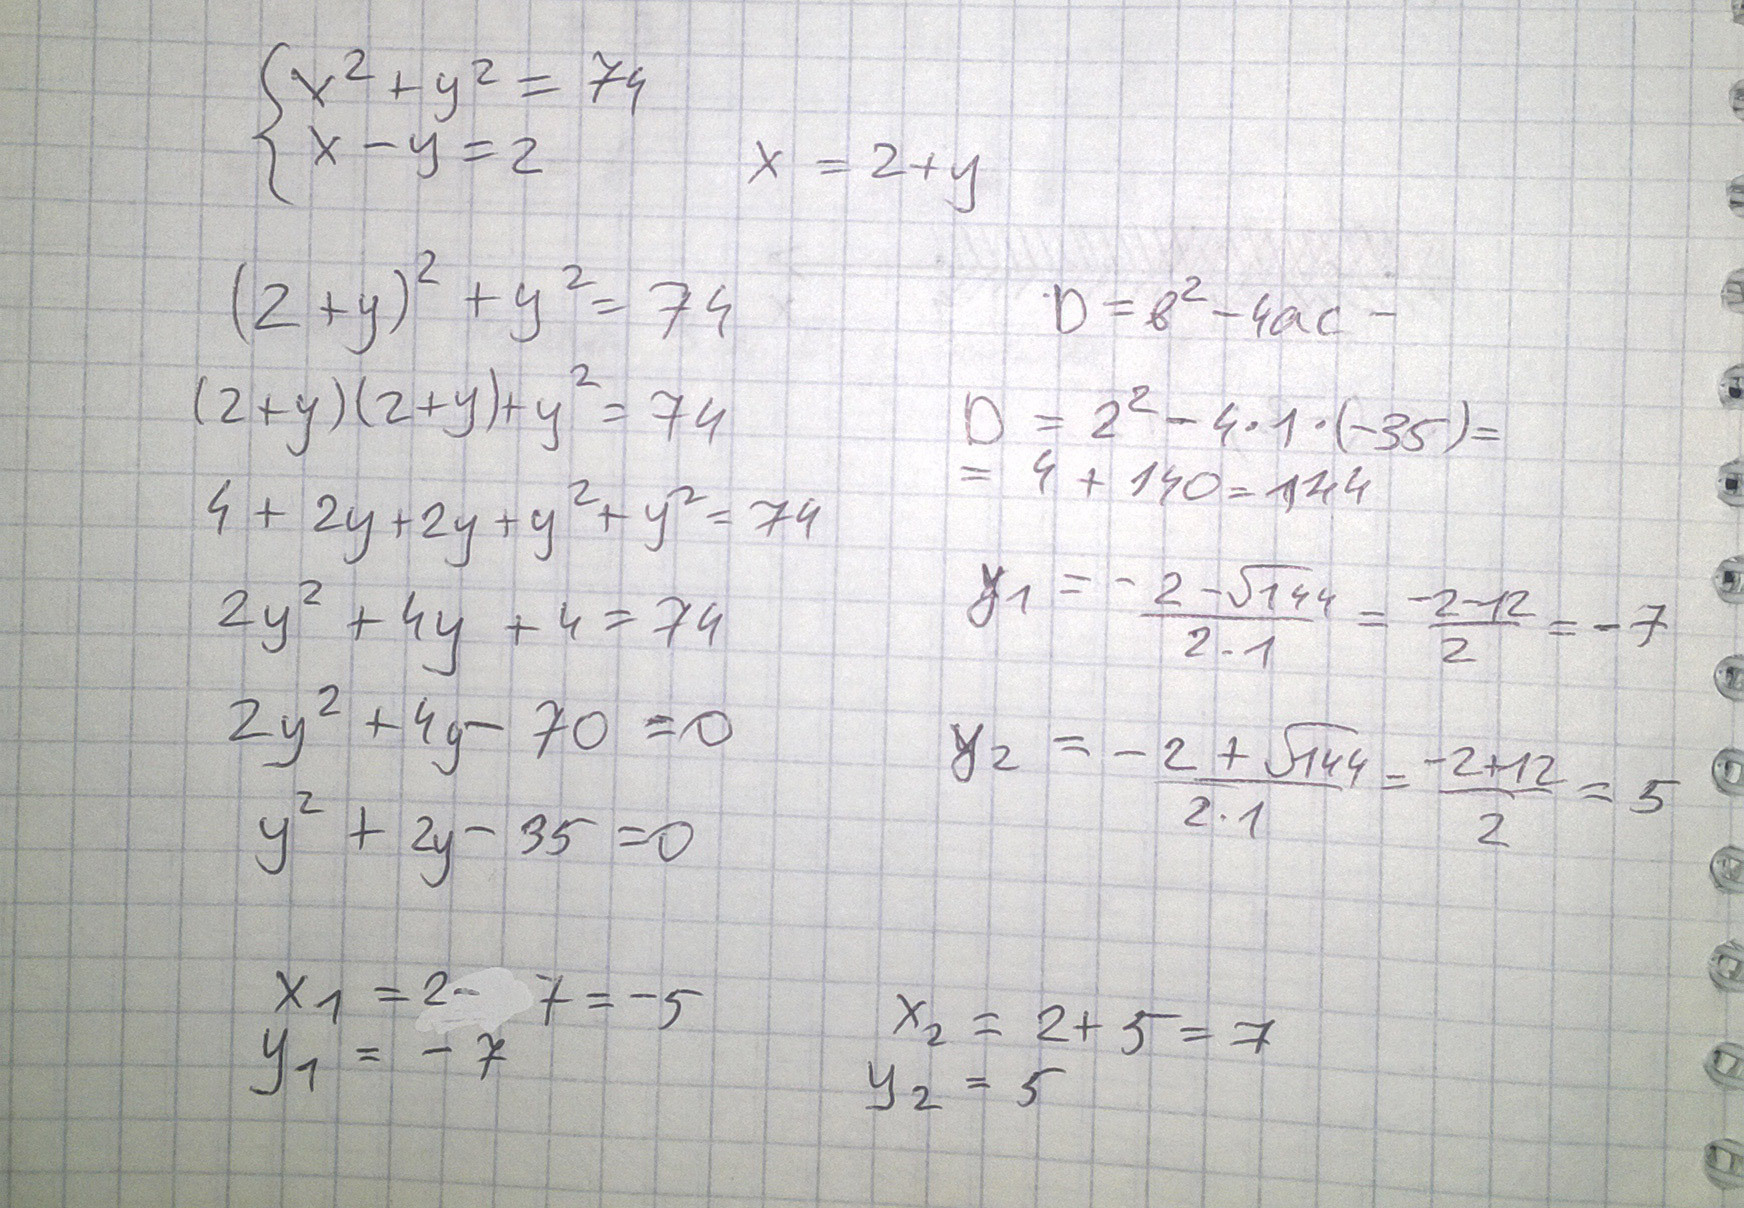 x² + y² = 74
x - y = 2
x = 2 + y
(2 + y)² + y² = 74
(2+y)(2+y)+y² = 74
4 + 2y + 2y + y² + y² = 74
2y² + 4y + 4 = 74
2y² + 4y - 70 = 0
y² + 2y - 35 = 0
D = в² - 4ac -
D = 2² - 4·1·(-35) =
= 4 + 140 = 144
y₁ = (-2 - √144)/(2·1) = (-2-12)/2 = -7
y₂ = (-2 + √144)/(2·1) = (-2+12)/2 = 5
x₁ = 2 - 7 = -5
y₁ = -7
x₂ = 2 + 5 = 7
y₂ = 5